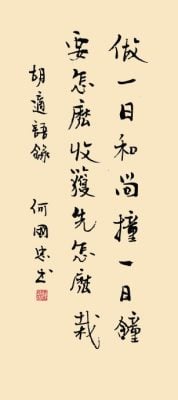 做一日和尚撞一日鐘
要怎麽收穫先怎麽栽
胡適語錄
何國忠书